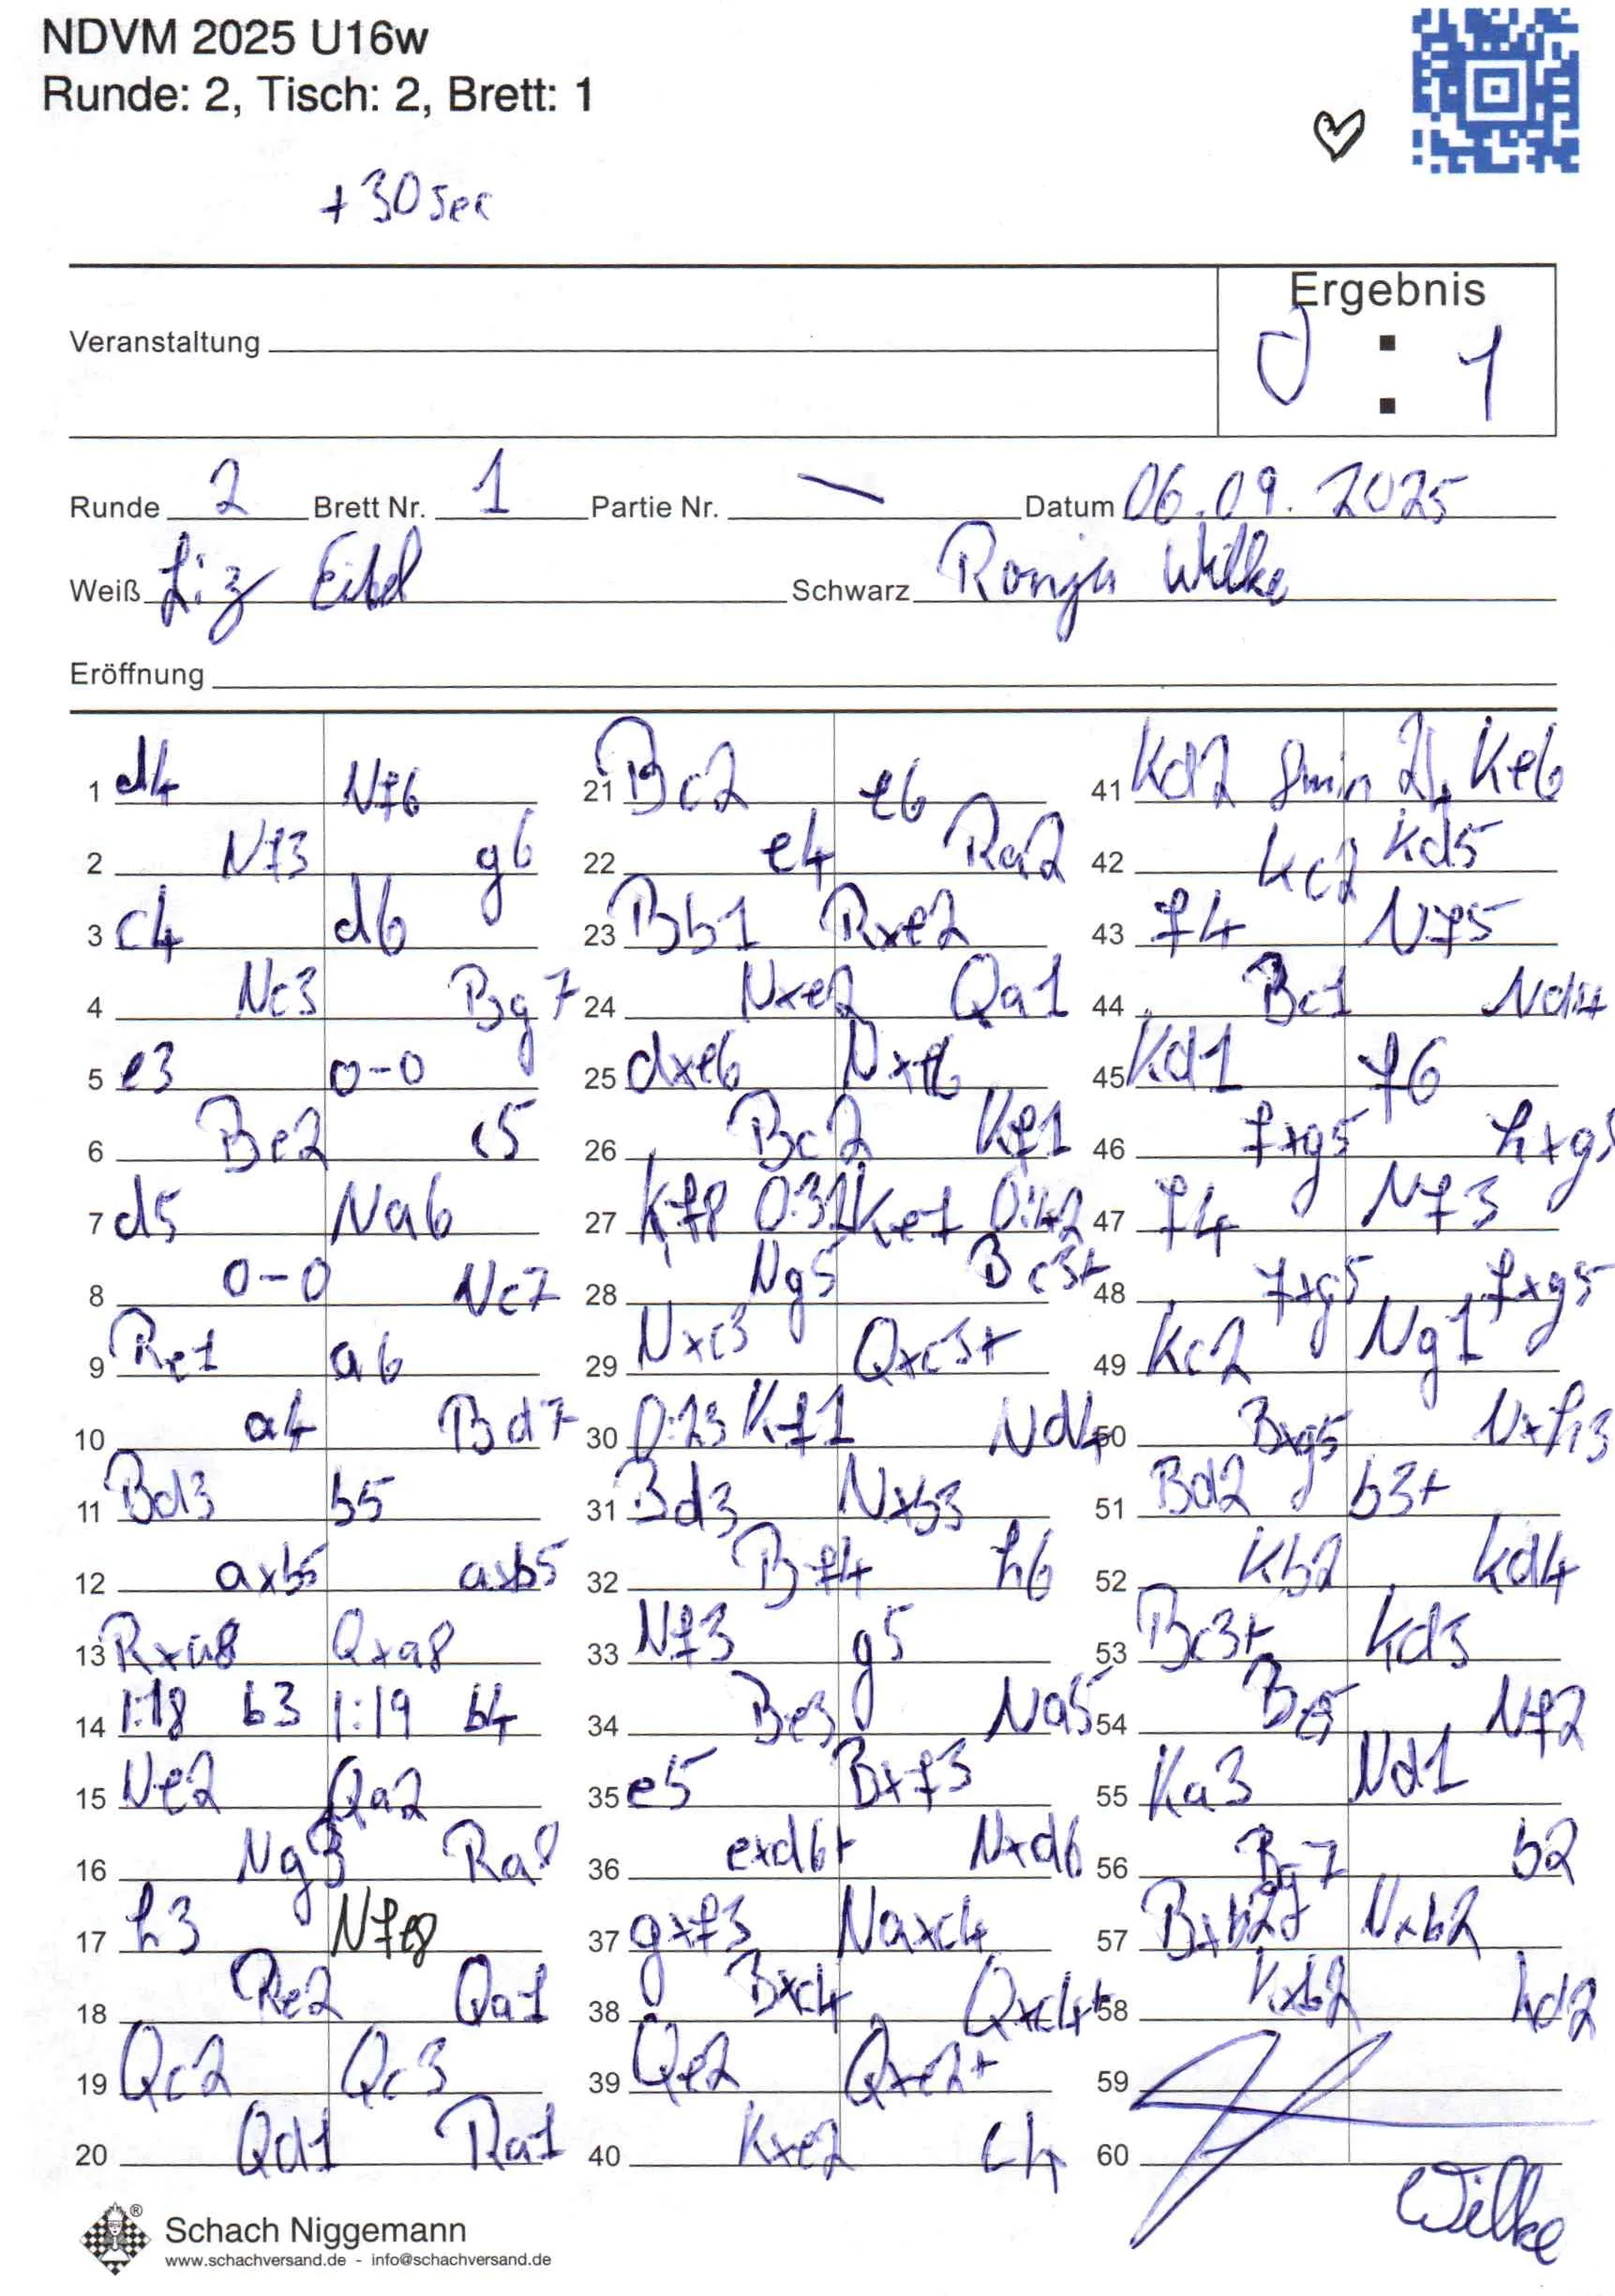 NDVM 2025 U16w
Runde: 2, Tisch: 2, Brett: 1
+30 sec
Ergebnis
Veranstaltung
0 : 1
Runde 2 Brett Nr. 1 Partie Nr. — Datum 06.09.2025
Weiß Liz Eibl Schwarz Ronja Wilke
Eröffnung
1 d4 Nf6
2 Nf3 g6
3 c4 d6
4 Nc3 Bg7
5 e3 0-0
6 Be2 c5
7 d5 Na6
8 0-0 Nc7
9 Re1 a6
10 a4 Bd7
11 Bd3 b5
12 axb5 axb5
13 Rxa8 Qxa8
14 1:18 b3 1:19 b4
15 Ne2 Qa2
16 Ng3 Ra8
17 h3 Nfe8
18 Re2 Qa1
19 Qc2 Qc3
20 Qd1 Ra1
21 Bc2 e6
22 e4 Ra2
23 Bb1 Rxe2
24 Nxe2 Qa1
25 dxe6 Nxe6
26 Bc2 Kf1
27 Kf8 0:31 Ke1 0:42
28 Ng5 Bc3+
29 Nxc3 Qxc3+
30 0:23 Kf1 Nd4
31 Bd3 Nxb3
32 Bf4 h6
33 Nf3 g5
34 Be3 Na5
35 e5 Bxf3
36 exd6+ Nxd6
37 gxf3 Naxc4
38 Bxc4 Qxc4+
39 Qe2 Qxe2+
40 Kxe2 c4
41 Kd2 8min 21 Ke6
42 Kc2 Kd5
43 f4 Nf5
44 Bc1 Nd4
45 Kd1 f6
46 fxg5 hxg5
47 f4 Nf3
48 fxg5 fxg5
49 Kc2 Ng1
50 Bxg5 Nxh3
51 Bd2 b3+
52 Kb2 Kd4
53 Bc3+ Kd3
54 Be5 Nf2
55 Ka3 Nd1
56 Bg7 b2
57 Bxb2 Nxb2
58 Kxb2 Kd2
59
60
Wilke
Schach Niggemann
www.schachversand.de - info@schachversand.de